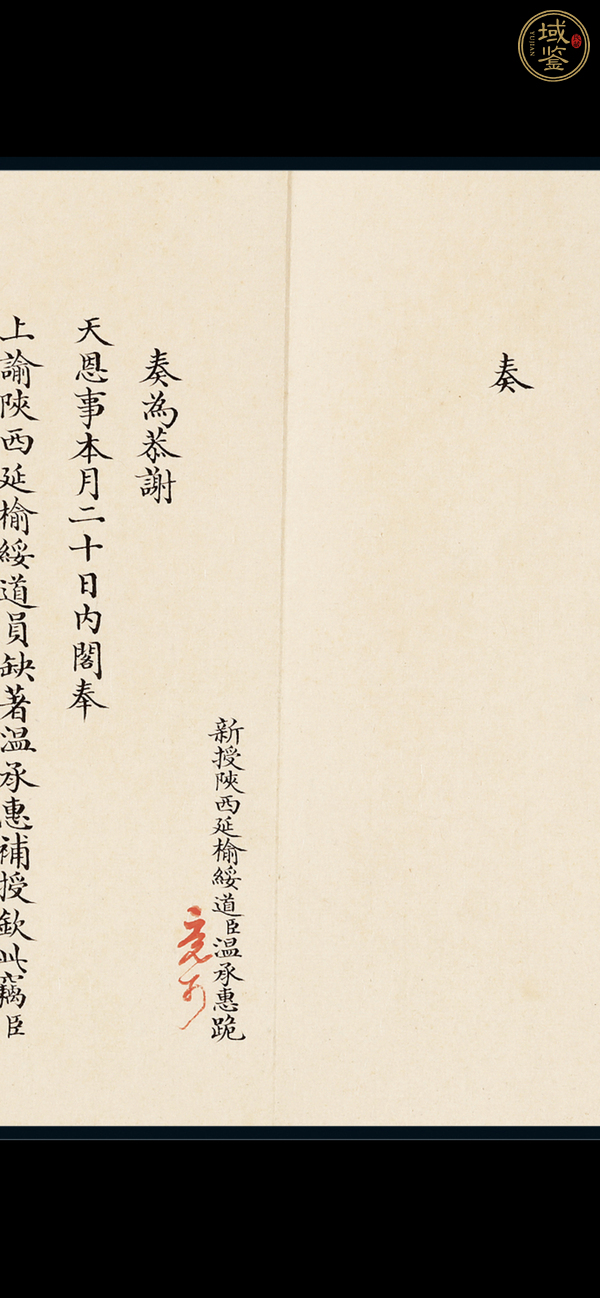 奏
新授陝西延榆綏道臣温承惠跪
竟可
奏為恭謝
天恩事本月二十日内閣奉
上諭陝西延榆綏道員缺著温承惠補授欽此竊臣
域鉴
YUJIAN